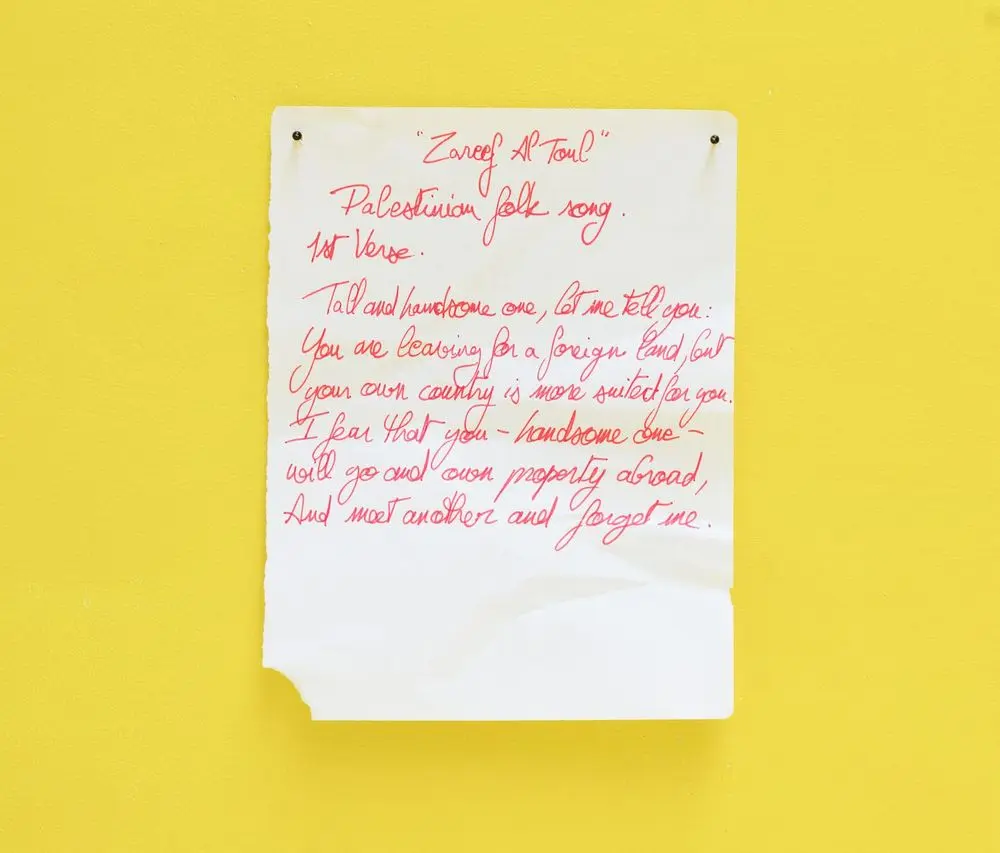 "Zareef Al Toul"
Palestinian folk song.
1st Verse.
Tall and handsome one, let me tell you:
You are leaving for a foreign land, but
your own country is more suited for you.
I fear that you - handsome one -
will go and own property abroad,
And meet another and forget me.